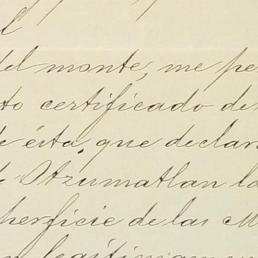 del monte, me pe
to certificado de
de ésta, que declar
de Otzumatlan la
perficie de las M